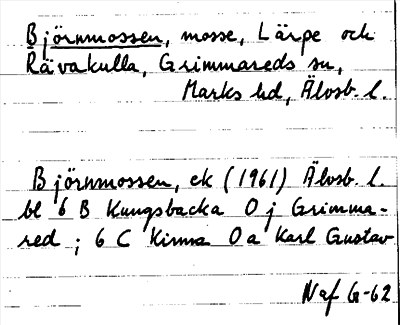 Björnmossen, mosse, Lärpe och
Rävakulla, Grimmareds sn,
Marks hd, Älvsb. l.
Björnmossen, ek (1961) Älvsb. l.
bl 6 B Kungsbacka 0 j Grimma-
red ; 6 C Kinna 0 a Karl Gustav
Naf G-62